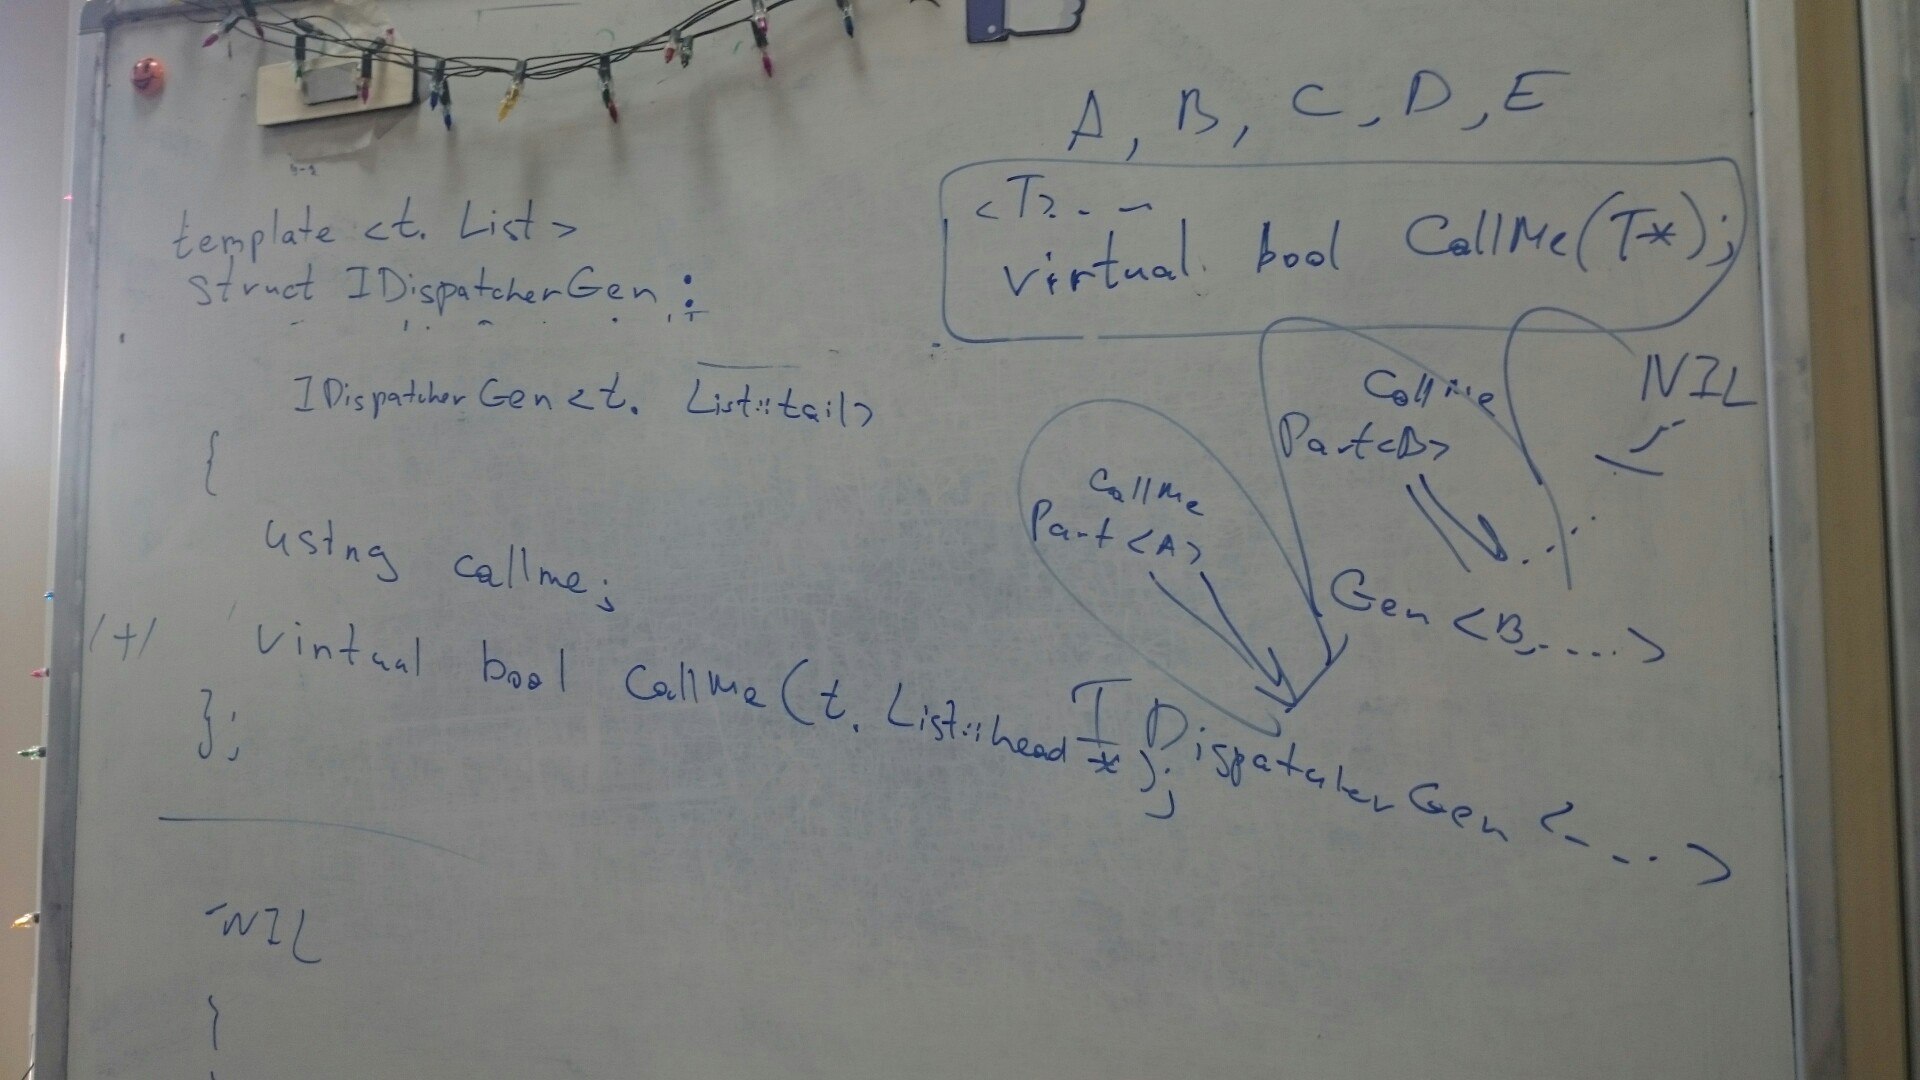 template <t. List>
struct IDispatcherGen :
IDispatcherGen <t. List::tail>
{
using callme;
/+/ virtual bool CallMe(t. List::head *);
};
NIL
{
A, B, C, D, E
<T>. - -
virtual bool CallMe(T*);
NIL
CallMe
Part<B>
CallMe
Part <A>
Gen <B,....>
IDispatcherGen <....>